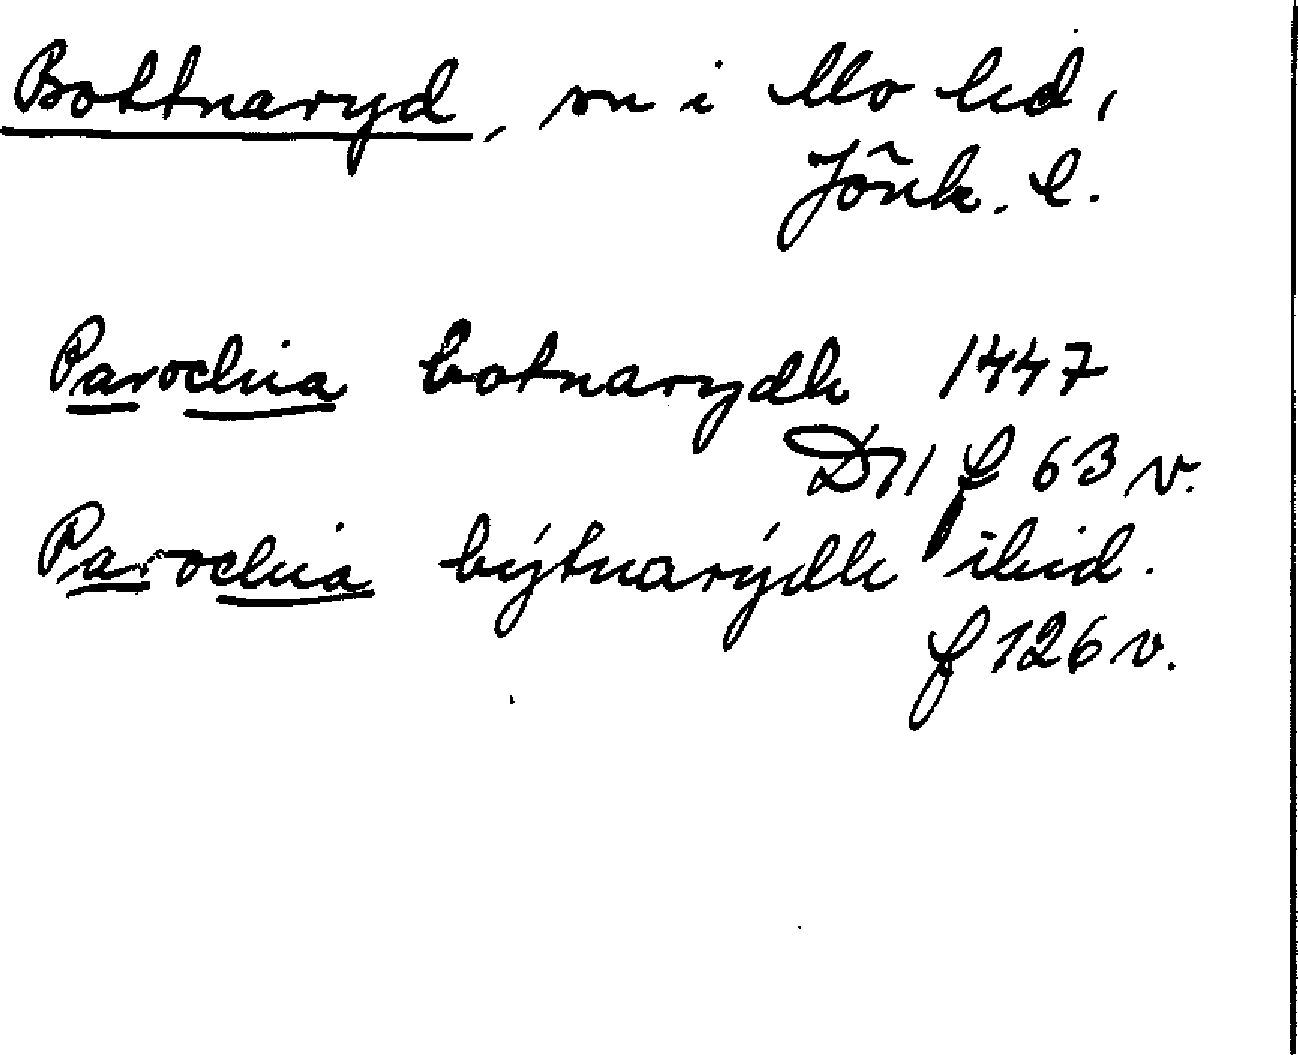 Bottnaryd, sn i Mo hd,
Jönk. l.
Parochia botnarydh 1447
D 11 f 63 v.
Parochia býtnarýdh ibid.
f 126 v.